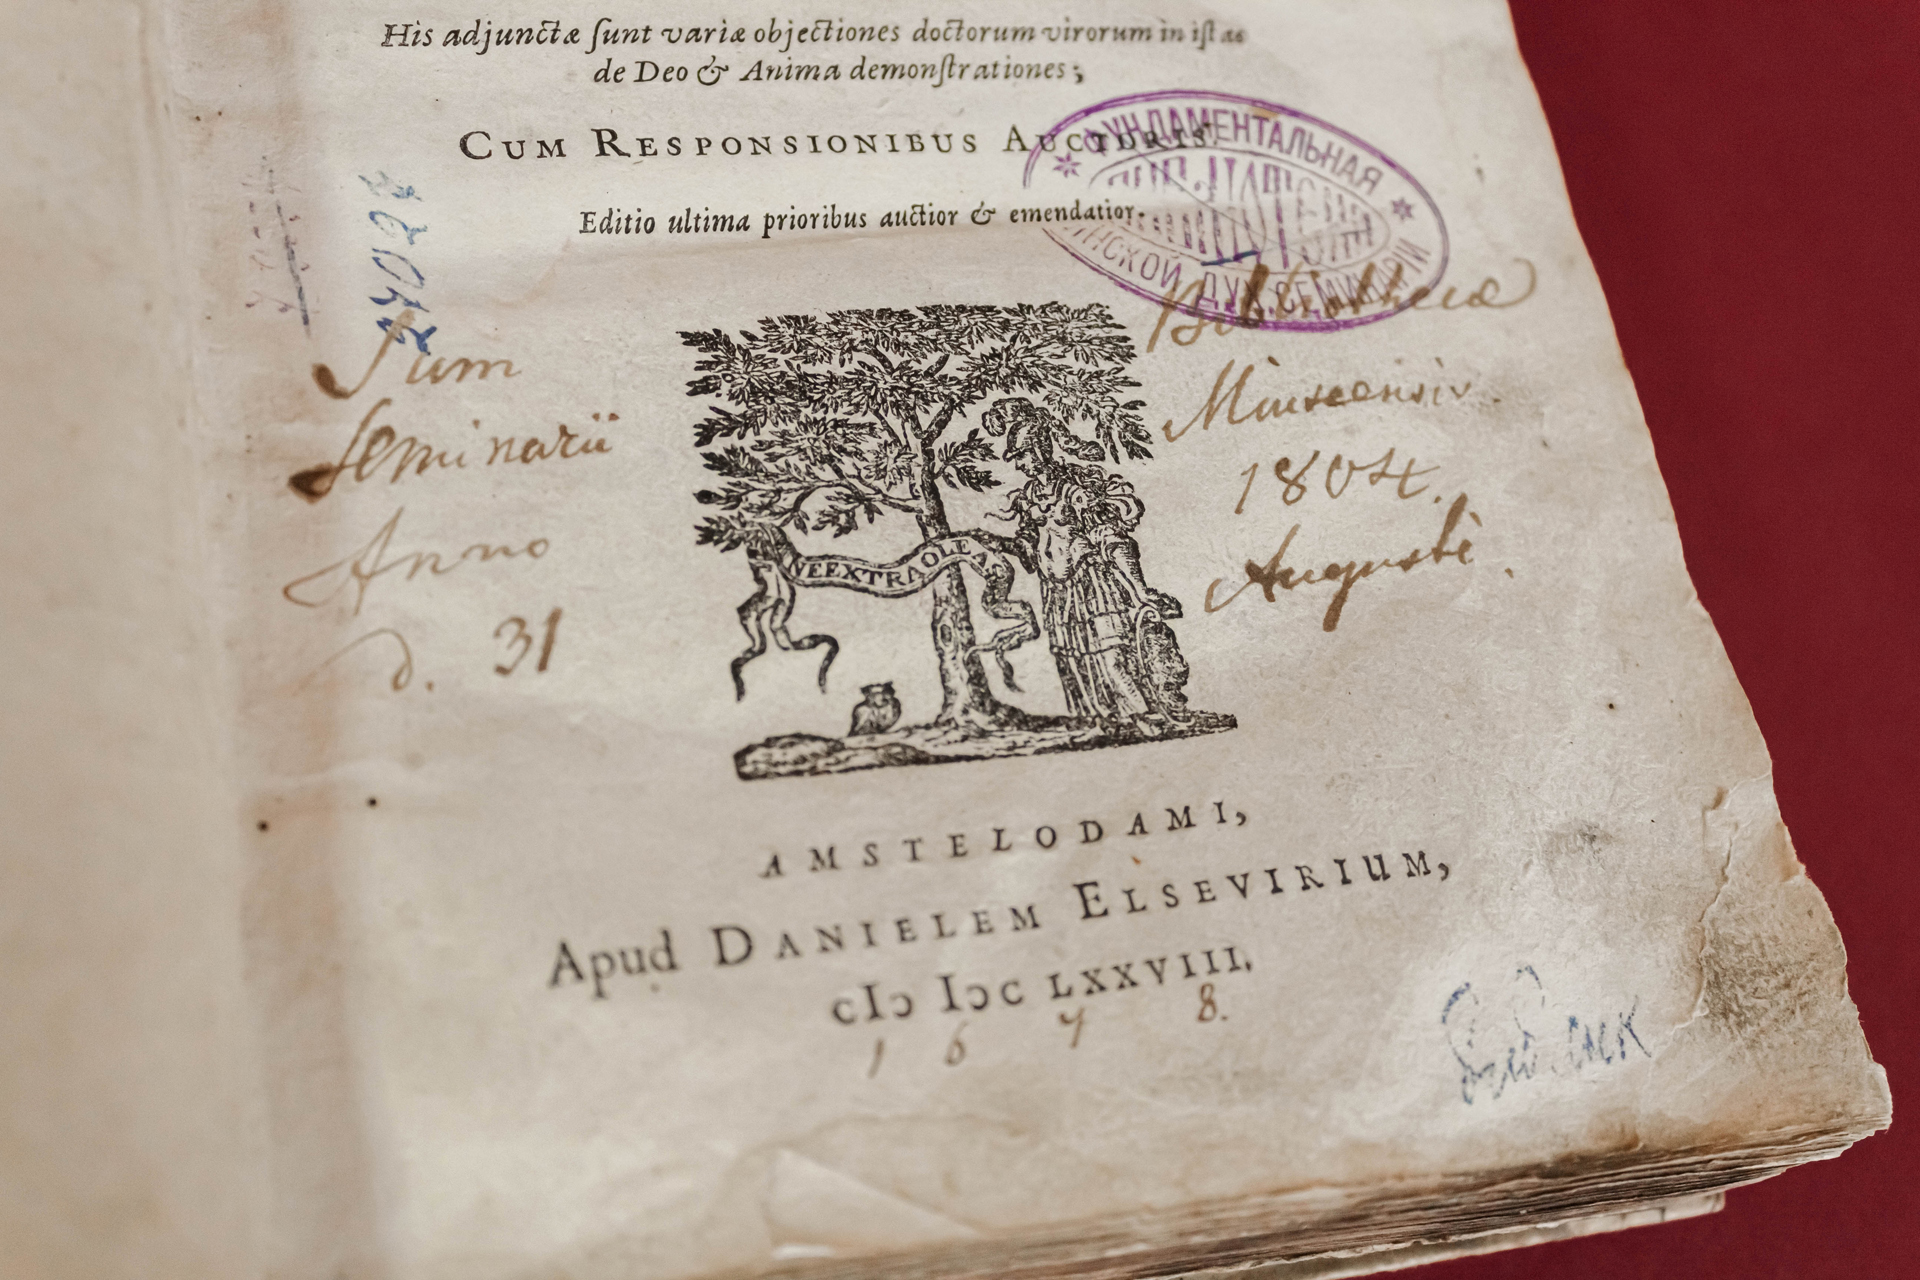 His adjunctæ ſunt variæ objectiones doctorum virorum in iſtas
de Deo & Anima demonſtrationes;
CUM RESPONSIONIBUS AUCTORIS.
Editio ultima prioribus auctior & emendatior.
ФУНДАМЕНТАЛЬНАЯ
ИНСКОЙ ДУХ. СЕМИНАРІИ
Sum Bibliotheca
Seminarii Minscensis.
Anno 1804.
d. 31 Augusti.
NE EXTRA OLEA
AMSTELODAMI,
Apud DANIELEM ELSEVIRIUM,
cIɔ Iɔc LXXVIII.
1 6 7 8.